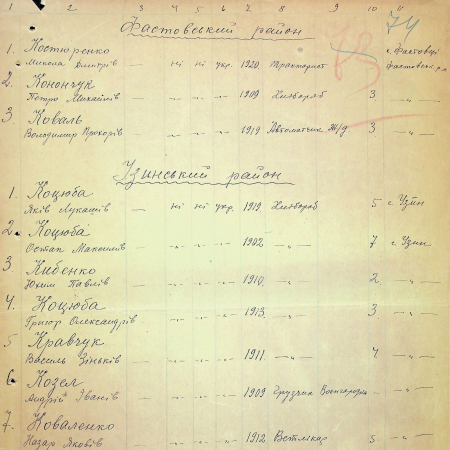 1 2 3 4 5 6 7 8 9 10 11
74
Фастовський район
1. Костюренко
Микола Дмитрів — ні ні укр. 1920 Тракторист с. Фастовці
2. Конончук
Петро Михайлів — -„- -„- -„- 1909 Хлібороб 3 -„-
3 Коваль
Володимир Прохорів — -„- -„- -„- 1919 Автоматчик Ж/д 3 -„-
Узинський район
1. Коцюба
Яків Лукашів — ні ні укр. 1919 Хлібороб 5 с. Узин
2 Коцюба
Остап Максимів — -„- -„- -„- 1902 -„- 7 с. Узин
3. Кибенко
Юхим Павлів — -„- -„- -„- 1910 -„- 2 -„-
4. Коцюба
Григор Олександрів — -„- -„- -„- 1913 -„- 3 -„-
5 Кравчук
Василь Зіньків — -„- -„- -„- 1911 -„- 4 -„-
6. Козел
Андрій Іванів — -„- -„- -„- 1909 Грузчик -„-
7. Коваленко
Назар Яковів — -„- -„- -„- 1912 Ветлікар 5 -„-